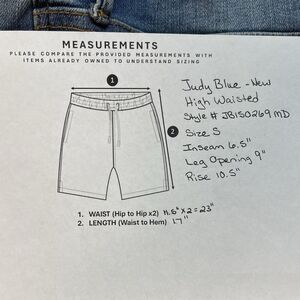 MEASUREMENTS
PLEASE COMPARE THE PROVIDED MEASUREMENTS WITH
ITEMS ALREADY OWNED TO UNDERSTAND SIZING
1
2
Judy Blue - New
High Waisted
Style # JB150269MD
Size S
Inseam 6.5"
Leg Opening 9"
Rise 10.5"
1. WAIST (Hip to Hip x2) 11.5" x 2 = 23"
2. LENGTH (Waist to Hem) 17"